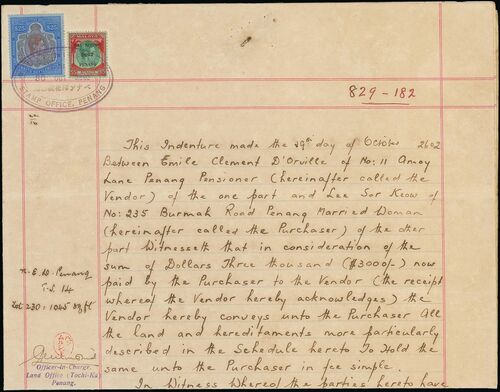 $25
MALAYA
PENANG
STAMP OFFICE, PENANG
829-182
This Indenture made the 29th day of October 2602
Between Emile Clement D'Orville of No: 11 Amoy
Lane Penang Pensioner (hereinafter called the
Vendor) of the one part and Lee Sor Keow of
No: 235 Burmah Road Penang Married Woman
(hereinafter called the Purchaser) of the other
part Witnesseth that in consideration of the
sum of Dollars Three thousand ($3000/-) now
paid by the Purchaser to the Vendor (the receipt
whereof the Vendor hereby acknowledges) the
Vendor hereby conveys unto the Purchaser All
the land and hereditaments more particularly
described in the Schedule hereto To Hold the
same unto the Purchaser in fee simple.
In Witness Whereof the parties hereto have
N.E.D. Penang
T.S. 14
Lot 230: 1045 sq ft
Officer-in-Charge.
Land Office (Tochi-Ka)
Penang.